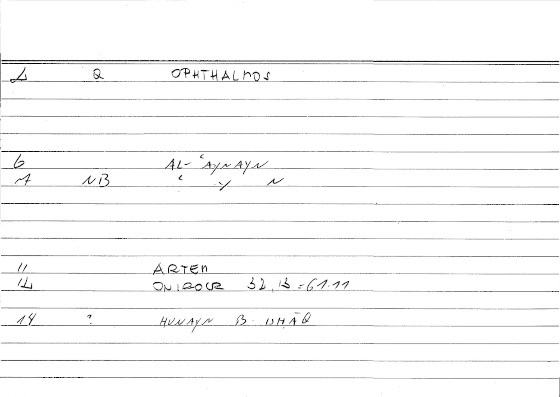 1 Q OPHTHALMOS
6 AL-ʿAYNAYN
7 NB ʿ Y N
11 ARTEM
12 ONIROCR 52,13 = 61.11
14 ? HUNAYN B ISHĀQ